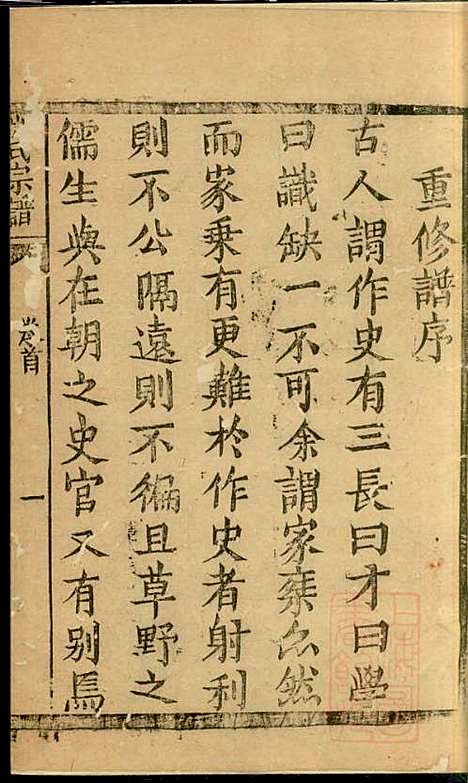 重修譜序
古人謂作史有三長曰才曰學
曰識缺一不可余謂家乘亦然
而家乘有更難於作史者射利
則不公隔遠則不徧且草野之
儒生與在朝之史官又有别焉
氏宗譜
卷首
一